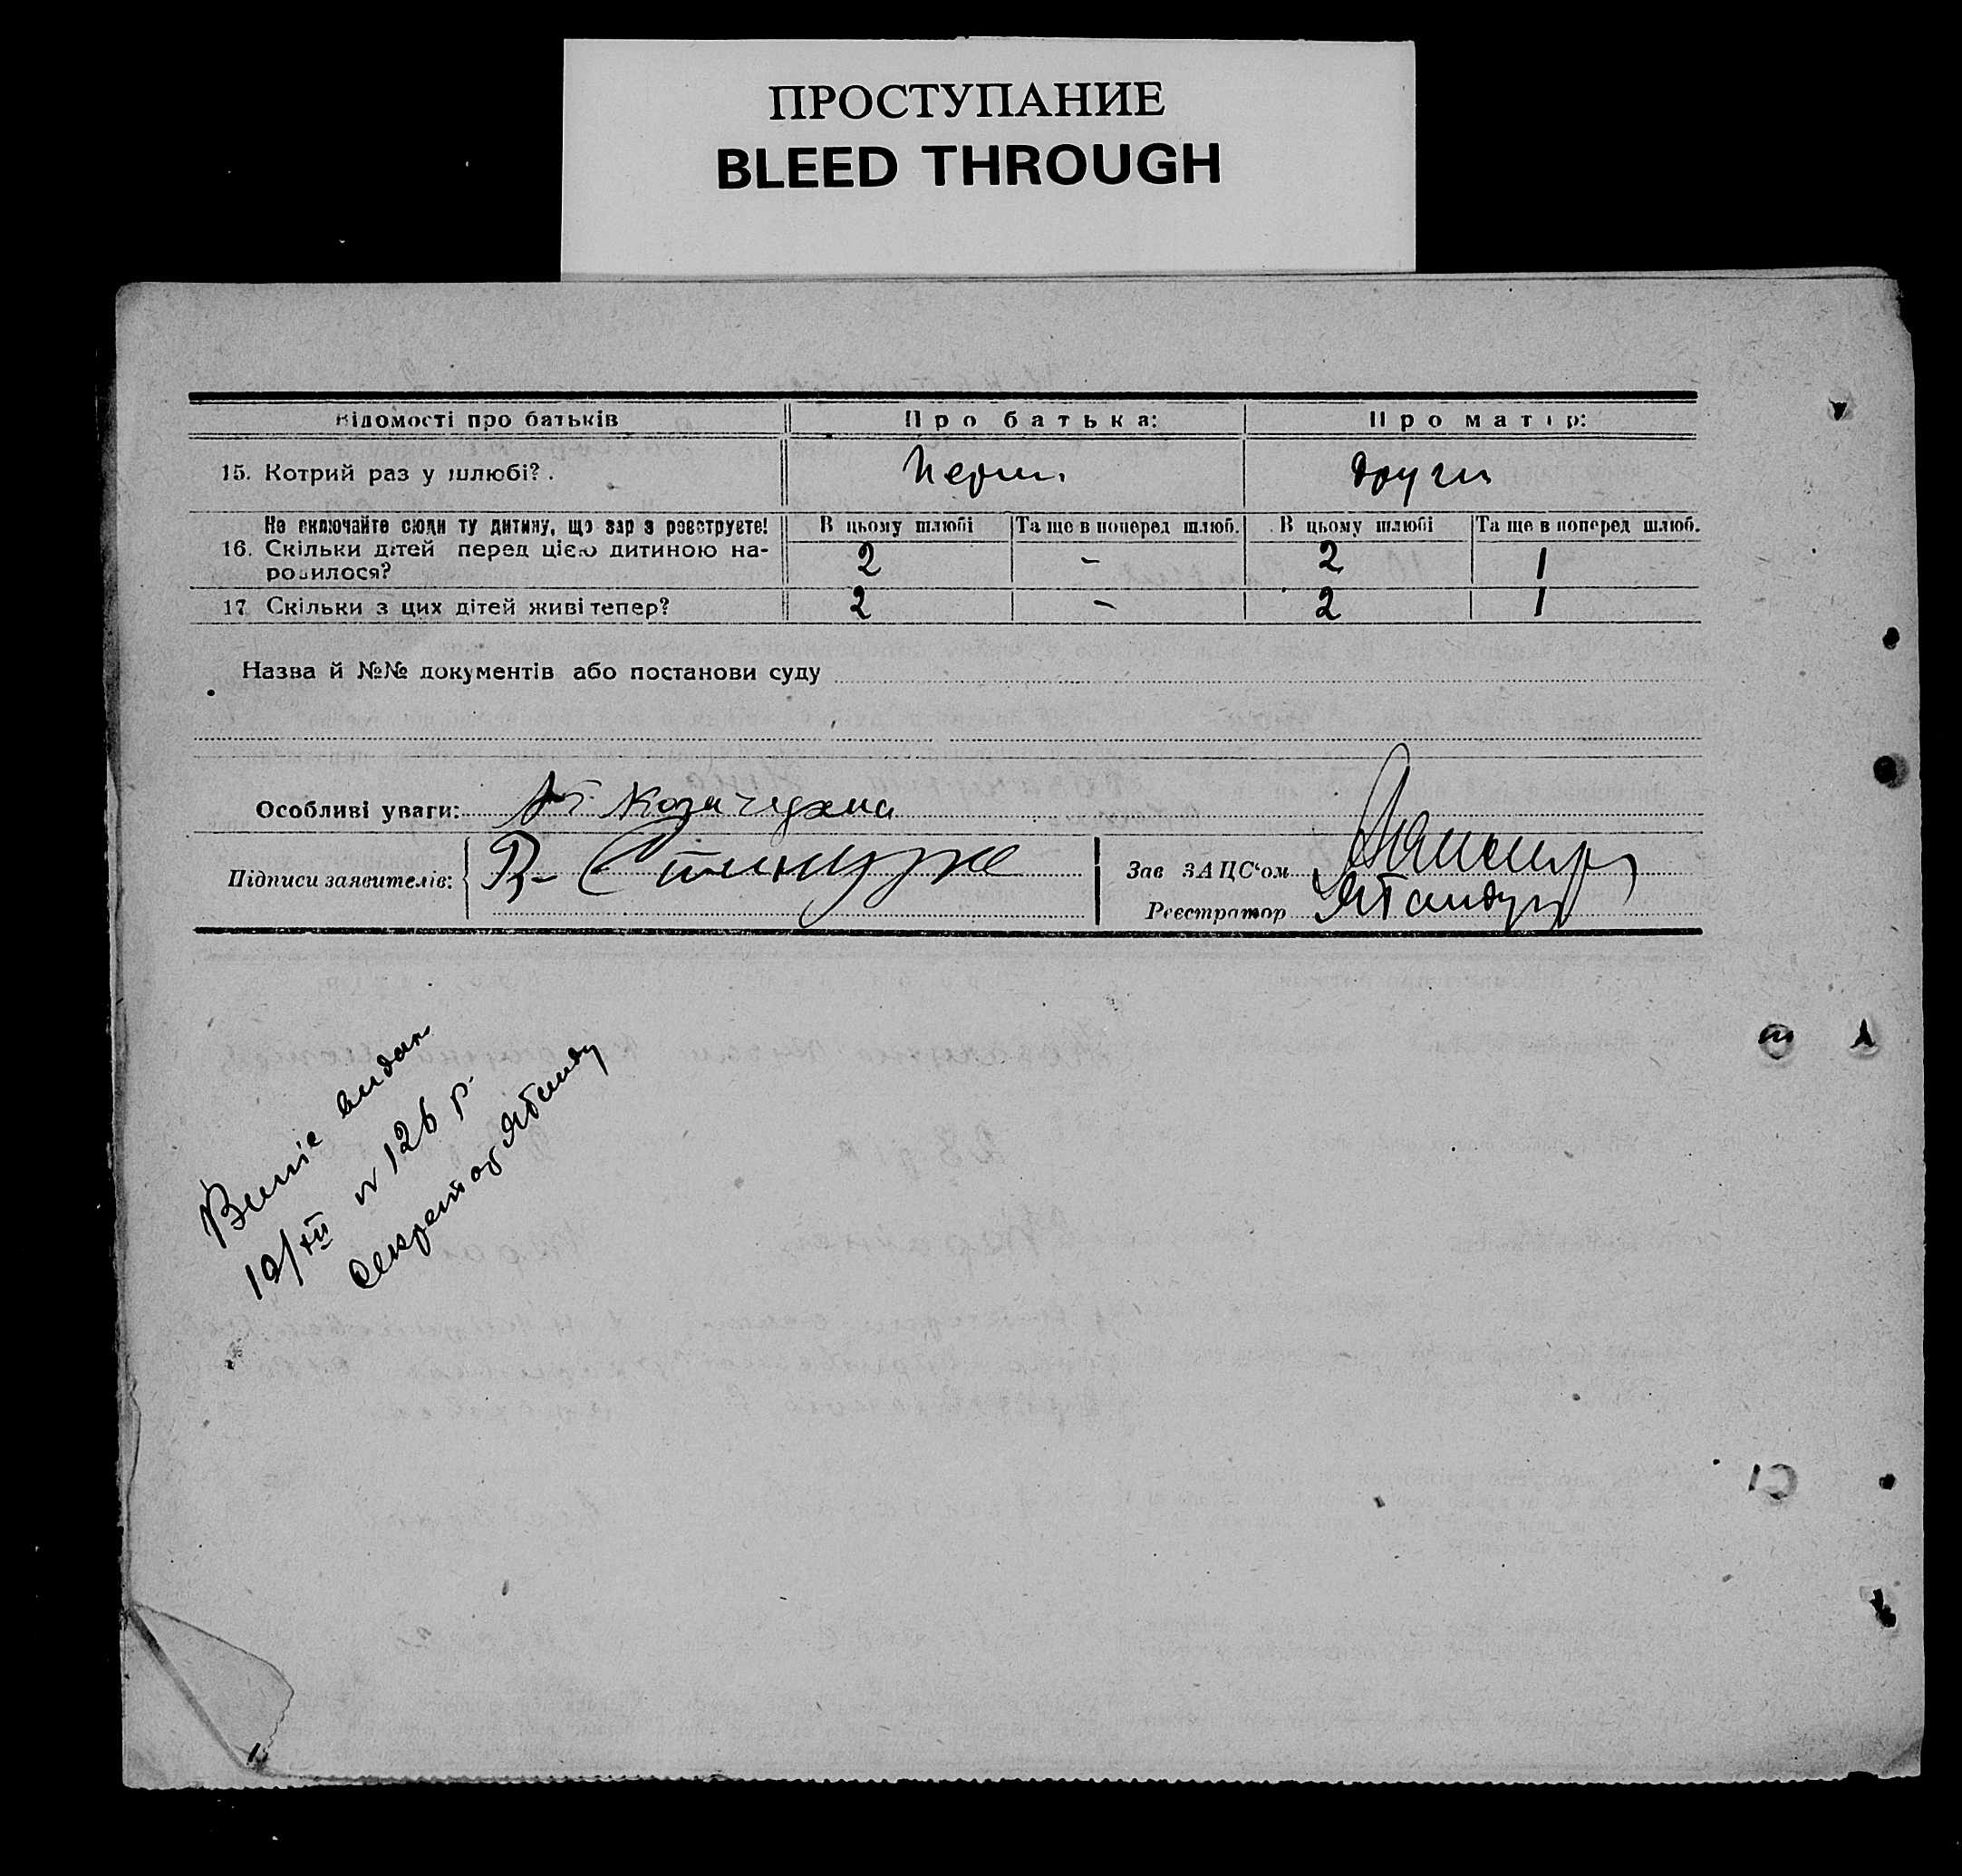 ПРОСТУПАНИЕ
BLEED THROUGH
Відомості про батьків Про батька: Про матір:
15. Котрий раз у шлюбі? . Перш. други
Не включайте сюди ту дитину, що зараз реєструєте! В цьому шлюбі Та ще в поперед шлюб. В цьому шлюбі Та ще в поперед шлюб.
16. Скільки дітей перед цією дитиною на- 2 - 2 1
родилося?
17 Скільки з цих дітей живі тепер? 2 - 2 1
Назва й №№ документів або постанови суду
Особливі уваги:
Підписи заявителів:
Зав ЗАЦС'ом
Реєстратор
видан
19/XII N 126 р.
Секретар